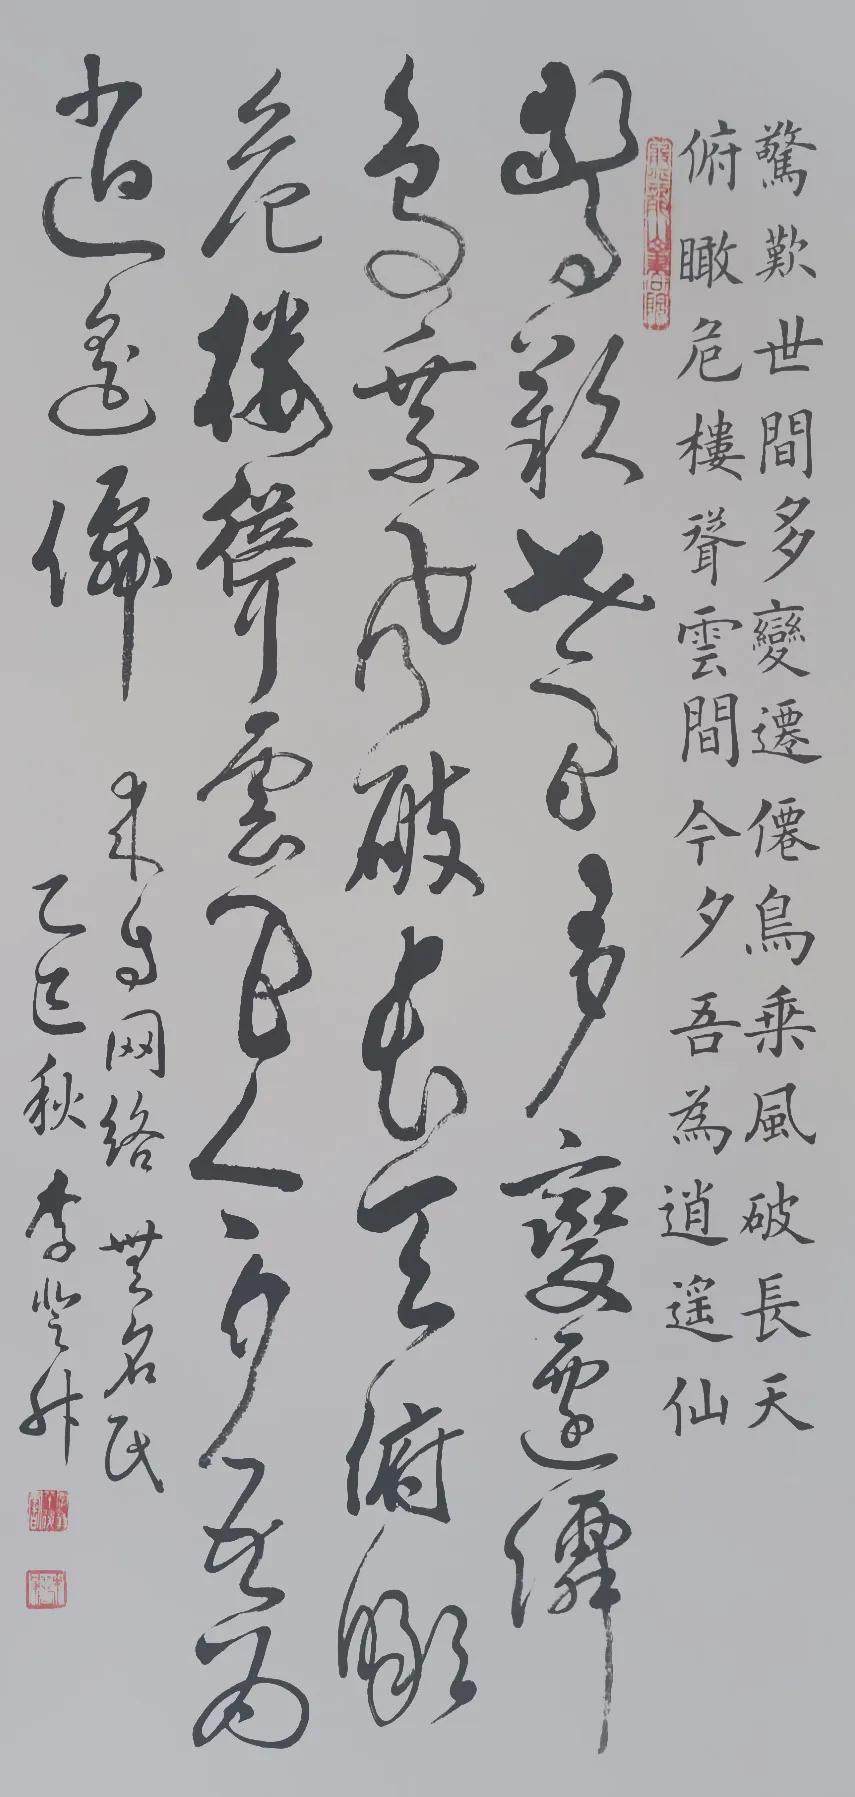 驚歎世間多變遷僊鳥乗風破長天
俯瞰危樓聳雲間今夕吾為逍遙仙
驚歎世間多變遷僊
鳥乗風破長天俯瞰
危楼聳雲間今夕吾為
逍遙僊
来自网络 無名氏
乙巳秋 李登